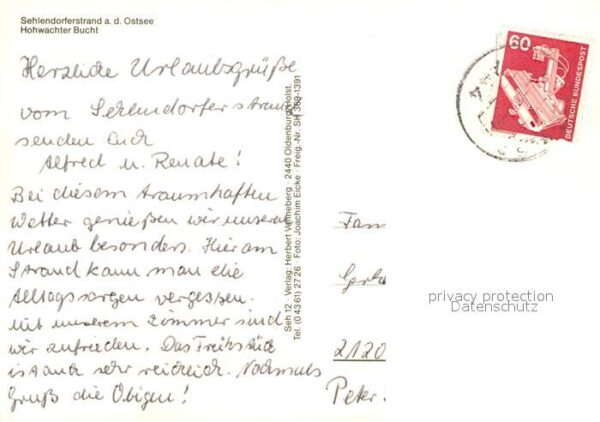 Sehlendorferstrand a. d. Ostsee
Hohwachter Bucht
Herzliche Urlaubsgrüße
vom Sehlendorfer Strand
senden Euch
Alfred u. Renate!
Bei diesem traumhaften
Wetter genießen wir unseren
Urlaub besonders. Hier am
Strand kann man die
Alltagssorgen vergessen.
Mit unserem Zimmer sind
wir zufrieden. Das Frühstück
ist auch sehr reichlich. Nochmals
Gruß die Obigen!
Seh 12 · Verlag: Herbert Venneberg · 2440 Oldenburg/Holst.
Tel. (0 43 61) 27 26 · Foto: Joachim Eicke · Freig.-Nr. SH 369-1391
60
DEUTSCHE BUNDESPOST
Fam
privacy protection
Datenschutz
2120
Peter.